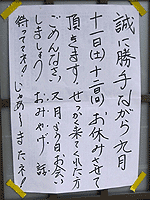 誠に勝手ながら九月
十一日(土)十二(日)お休みさせて
頂きます!せっかく来てくれた方
ごめんなさい又月よう日お会い
しましょう!おみやげ話
待っててネ!!じゃーまたネ!